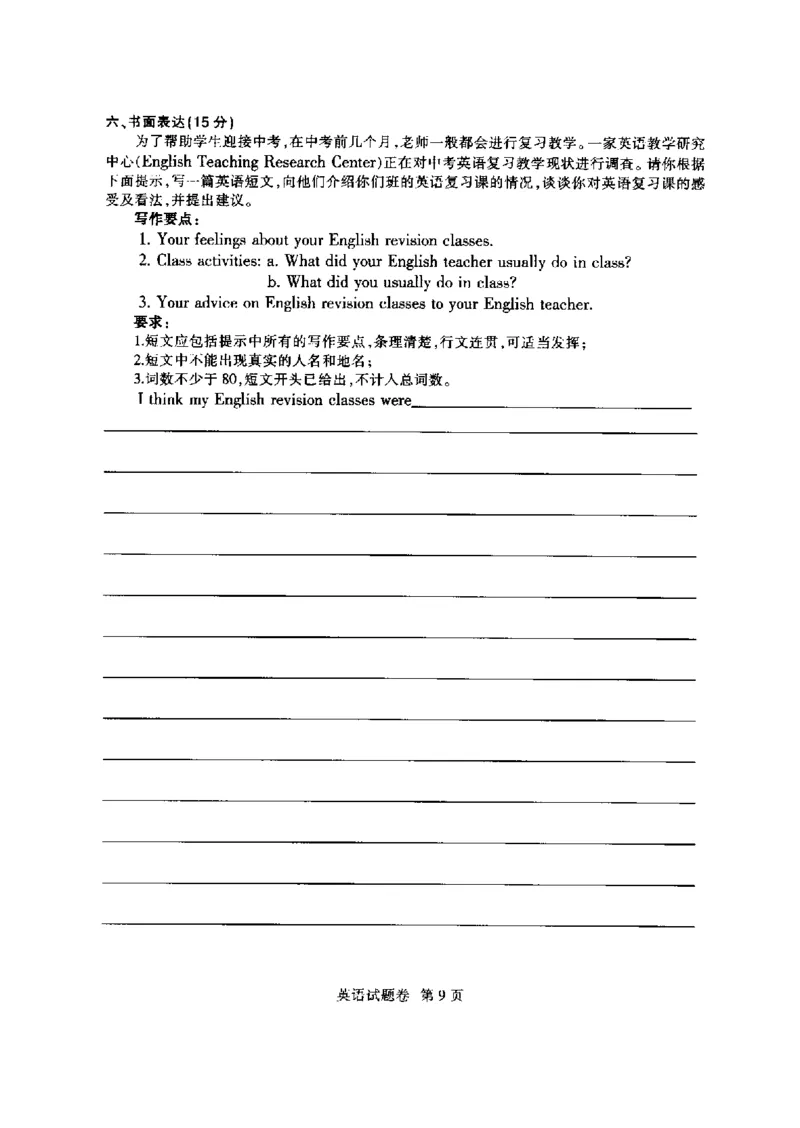 六、书面表达(15分)
为了帮助学生迎接中考,在中考前几个月,老师一般都会进行复习教学。一家英语教学研究
中心(English Teaching Research Center)正在对中考英语复习教学现状进行调查。请你根据
下面提示,写一篇英语短文,向他们介绍你们班的英语复习课的情况,谈谈你对英语复习课的感
受及看法,并提出建议。
写作要点:
1. Your feelings about your English revision classes.
2. Class activities: a. What did your English teacher usually do in class?
b. What did you usually do in class?
3. Your advice on English revision classes to your English teacher.
要求:
1.短文应包括提示中所有的写作要点,条理清楚,行文连贯,可适当发挥;
2.短文中不能出现真实的人名和地名;
3.词数不少于80,短文开头已给出,不计入总词数。
I think my English revision classes were
英语试题卷 第9页